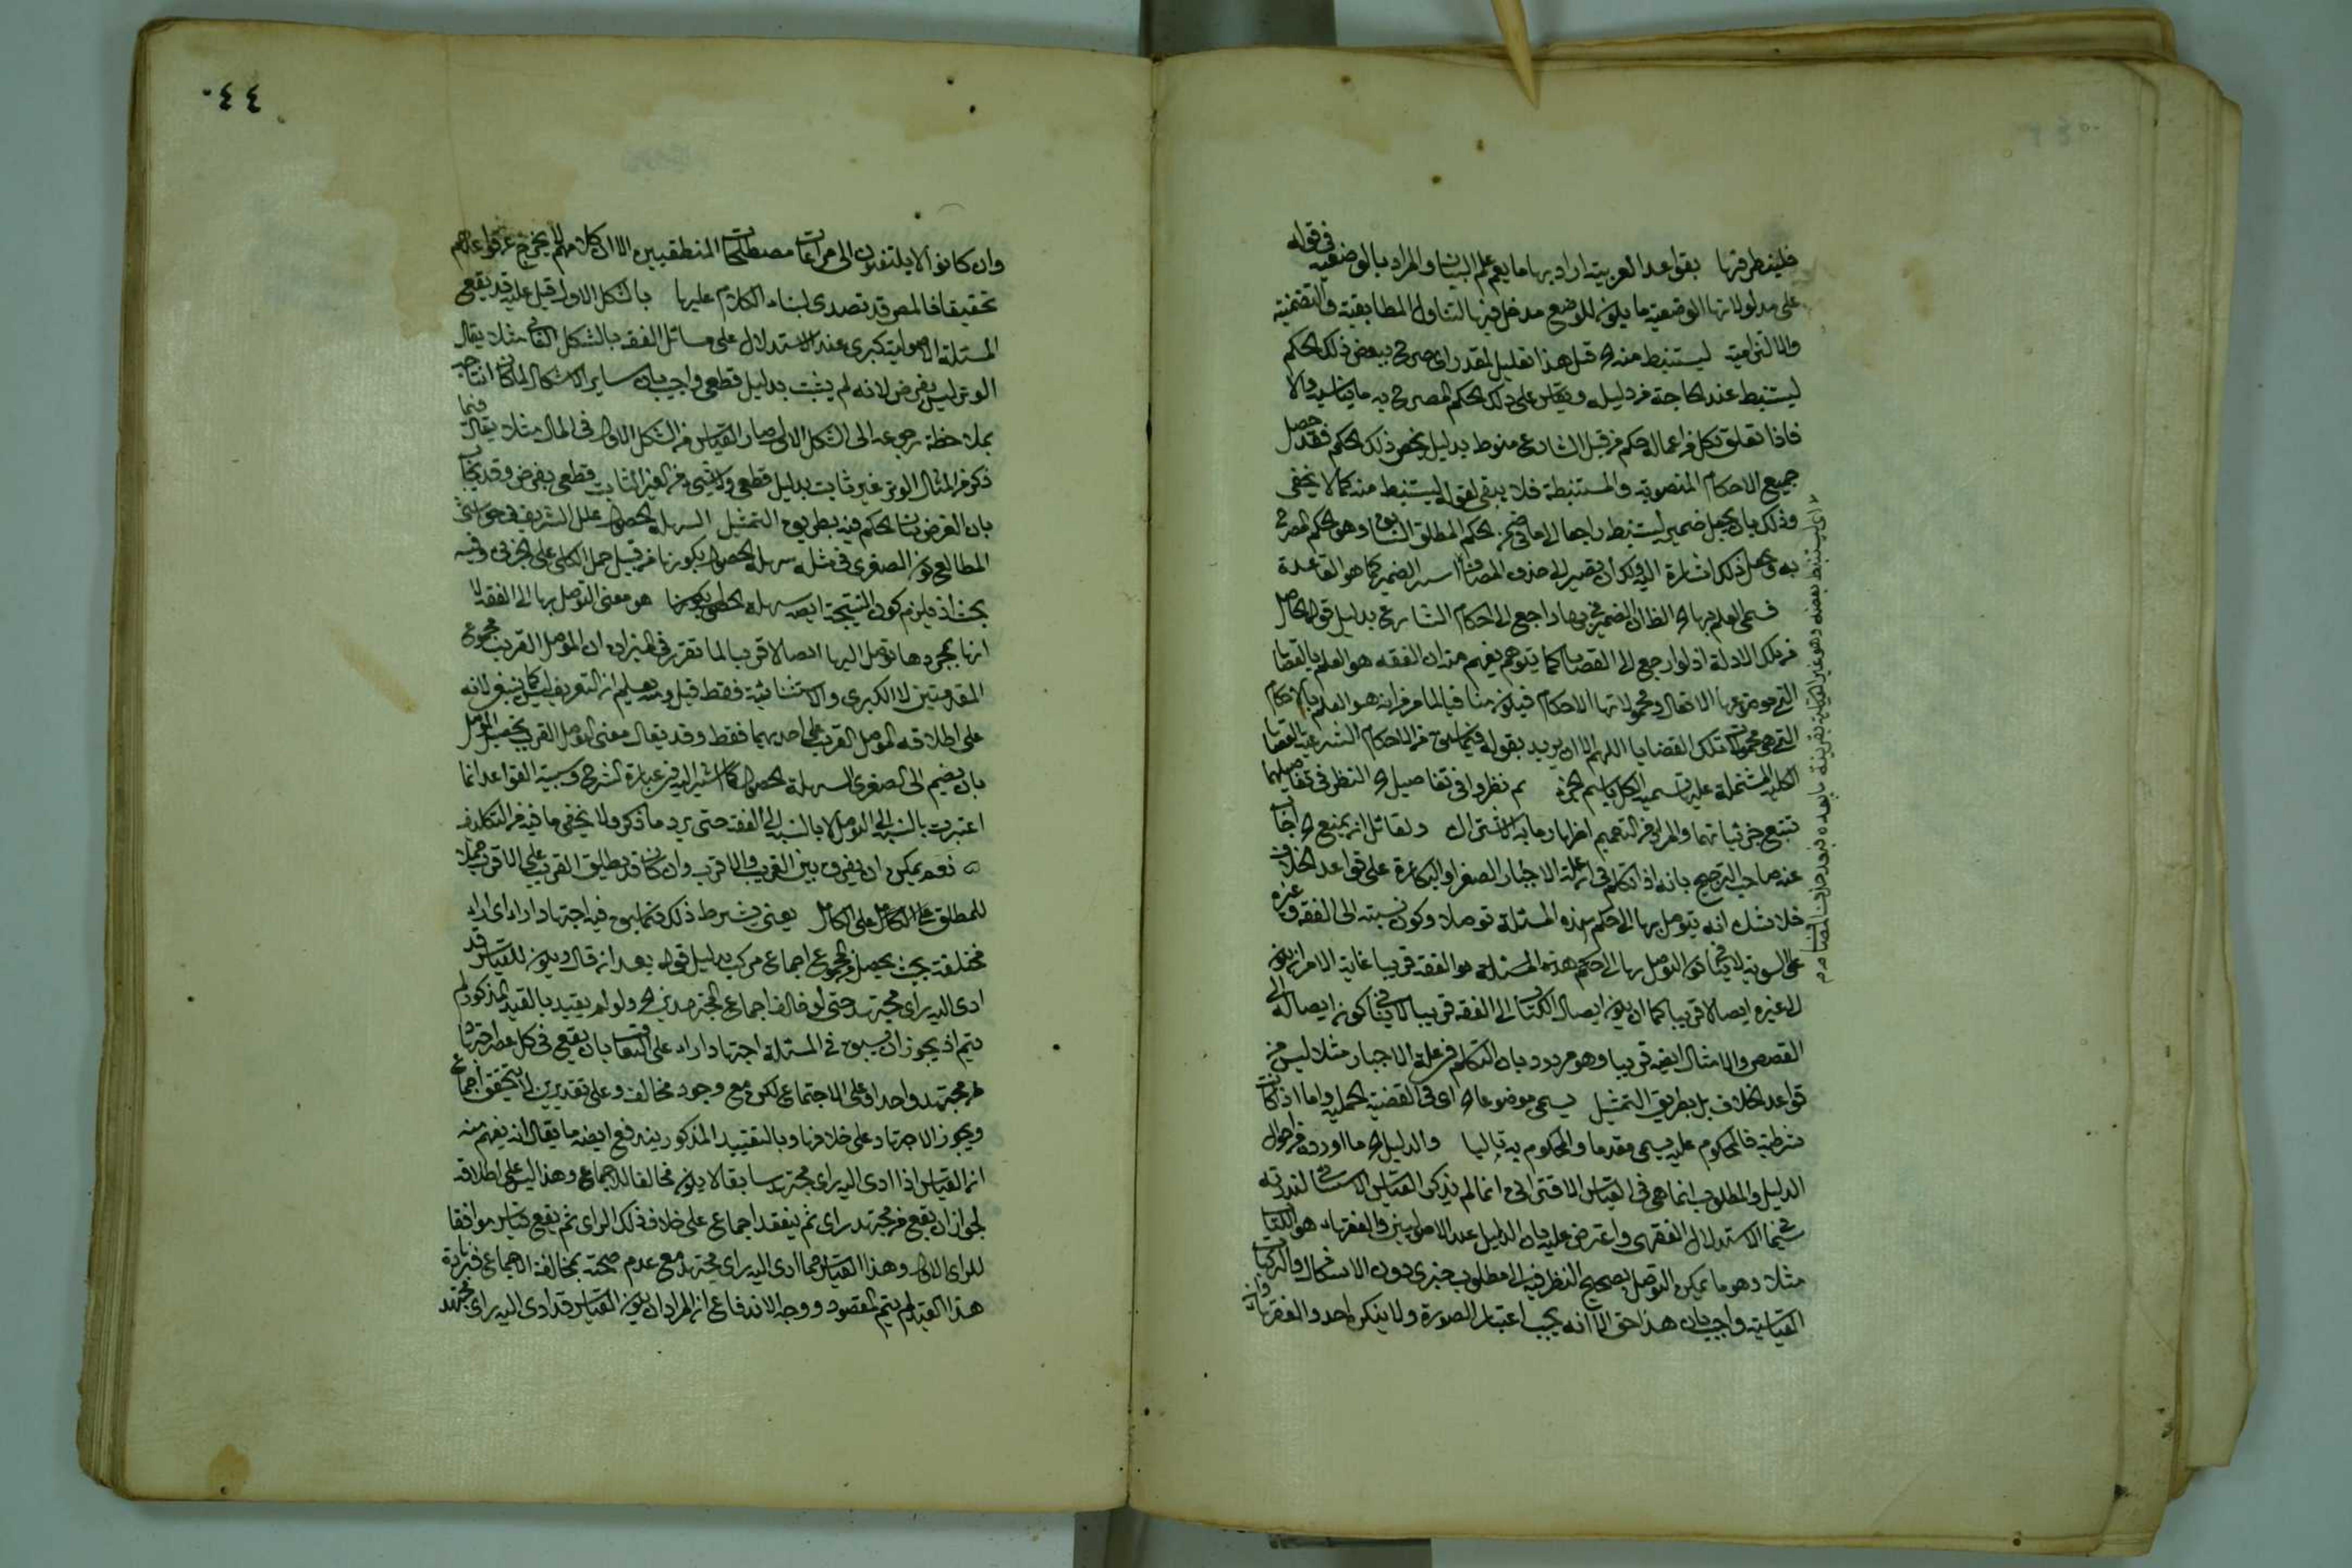 فلينظر فيها بقواعد العربية اراد بها ما يعم علم البيان والمراد بالوضعية في قوله
على مدلولاتها الوضعية ما يكون للوضع مدخل فيها لتناول المطابقية والتضمنية
والالتزامية ليستنبط منه قيل هذا تعليل لمقدر اي صرح ببعض ذلك الحكم
ليستنبط عند الحاجة من دليله ويقاس على ذلك الحكم المصرح به ما يناسبه والا
فاذا تعلق بكل من اعماله حكم من قبل الشارع منوط بدليل يخص ذلك الحكم فقد حصل
جميع الاحكام المنصوصة والمستنبطة فلا يبقى لقوله ليستنبط منه كما لا يخفى
وذلك بان يجعل ضمير ليستنبط راجعا الى الحكم المطلق السابق وهو الحكم المصرح
به ذلك اشارة اليه ولك ان تصير الى حذف المضاف الضمير كما هو القاعدة
فسمى العلم بها الظاهر ان الضمير في بها راجع الى احكام الشارع بدليل قوله الحاصل
من تلك الادلة اذ لو ارجع الى القضايا كما يتوهم يفهم منه ان الفقه هو العلم بالقضايا
التي موضوعها الافعال ومحمولاتها الاحكام فيكون منافيا لما مر من انه هو العلم بالاحكام
التي هي محمولات تلك القضايا اللهم الا ان يريد بقوله فيما سبق من الاحكام الشرعية القضايا
الكلية المشتملة عليها تسمية الكل باسم الجزء ثم نظروا في تفاصيل النظر في تفاصيلهما
تتبع جزئياتهما والمراد من التعميم اظهار ما به الاشتراك ولقائل ان يمنع اجاب
عنه صاحب الترجيح بانه اذا تكلم في علة الاجبار الصغر او البكارة على قواعد الخلاف
فلا شك انه يتوصل بها الى حكم هذه المسئلة توصلا وكون نسبته الى الفقه وغيره
على السوية لا ينافي كون التوصل بها الى حكم هذه المسئلة هو الفقه قريبا غاية الامر ان يكون
الى غيره ايصالا قريبا كما ان يكون ايصال الكتاب الى الفقه قريبا لا ينافي كون ايصاله الى
القصص والامثال ايضا قريبا وهو مردود بان التكلم في علة الاجبار مثلا ليس من
قواعد الخلاف بل بطريق التمثيل يسمى موضوعا اي في القضية الحملية واما اذا كانت
شرطية فالمحكوم عليه يسمى مقدما والمحكوم به تاليا والدليل ما اورده من احوال
الدليل والمطلوب انما هي في القياس الاقتراني انما لم يذكر القياس الاستثنائي لندرته
في الاستدلال الفقهي واعترض عليه بان الدليل عند الاصوليين والفقهاء هو الكتاب
مثلا وهو ما يمكن التوصل بصحيح النظر فيه الى مطلوب خبري دون الاشكال والتركيبات
القياسية واجيب بان هذا حق الا انه يجب اعتبار الصورة ولا ينكره احد والفقهاء
وان كانوا لا يلتفتون الى مراعات مصطلحات المنطقيين الا ان كلامهم لا يخرج عن قواعدهم
تحقيقا فالمصر قد تصدى لبناء الكلام عليها بالشكل الاول قيل عليه قد يقع
المسئلة الاصولية كبرى عند الاستدلال على مسائل الفقه بالشكل الثاني مثلا يقال
الوتر ليس بفرض لانه لم يثبت بدليل قطعي واجيب بان ساير الاشكال لما كان انتاجه
بملاحظة رجوعه الى الشكل الاول صار القياس من الشكل الاول في المال مثلا يقال فيما
ذكر من المثال الوتر غير ثابت بدليل قطعي ولا شيء من الغير الثابت قطعي بفرض وقد يجاب
بان الغرض بيان الحكم فيه بطريق التمثيل السهلة الحصول علل الشريف في حواشي
المطالع كون الصغرى في مثله سهلة الحصول بكونها من قبيل حمل الكلي على الجزئي وفيه
بحث اذ يلزم كون النتيجة ايضا سهلة الحصول بكونها هو معنى التوصل بها الى الفقه لا
انها بمجردها توصل اليها ايصالا قريبا لما تقرر في الميزان ان الموصل القريب مجموع
المقدمتين لا الكبرى والاستثنائية فقط قيل ومنه يعلم ان التعريف ليس كما ينبغي لانه
على اطلاقه الموصل القريب على احديهما فقط وقد يقال معنى التوصل القريب
بان يضم الى الصغرى السهلة الحصول كما اشير اليه في عبارة الشرح وسببية القواعد انما
اعتبرت بالنسبة الى التوصل لا بالنسبة الى الفقه حتى يرد ما ذكر ولا يخفى ما فيه من التكلف
نعم يمكن ان يفرق بين القريب والاقرب وان كان قد يطلق القريب على الاقرب حملا
للمطلق على الكامل يعني بشرط ذلك فيما سبق فيه اجتهاد اراء اي اراء
مختلفة بحيث يحصل من مجموع اجماع مركب بدليل قوله بعد ان قال ويكون للقياس قد
ادى اليه راي مجتهد حتى لو خالف اجماع المجتهدين ولو لم يقيد بالقيد المذكور لم
يتم اذ يجوز ان يسبق في المسئلة اجتهاد اراء على التعاقب بان يقع في كل عصر اجتهاد
من مجتهد واحد او على الاجتماع لكن مع وجود مخالف وعلى تقديرين لا يتحقق اجماع
ويجوز الاجتهاد على خلافها وبالتقييد المذكور يندفع ايضا ما يقال انه يفهم منه
ان القياس اذا ادى اليه راي مجتهد سابقا لا يكون مخالفا للاجماع وهذا ليس على اطلاقه
لجواز ان يقع من مجتهد راي ثم ينعقد اجماع على خلاف ذلك الراي ثم يقع قياس موافقا
للراي الاول وهذا القياس مما ادى اليه راي مجتهد مع عدم صحته بمخالفة الاجماع فبزيادة
هذا القيد لم يتم المقصود ووجه الاندفاع ان المراد ان يكون القياس قد ادى اليه راي مجتهد
٤٤٠